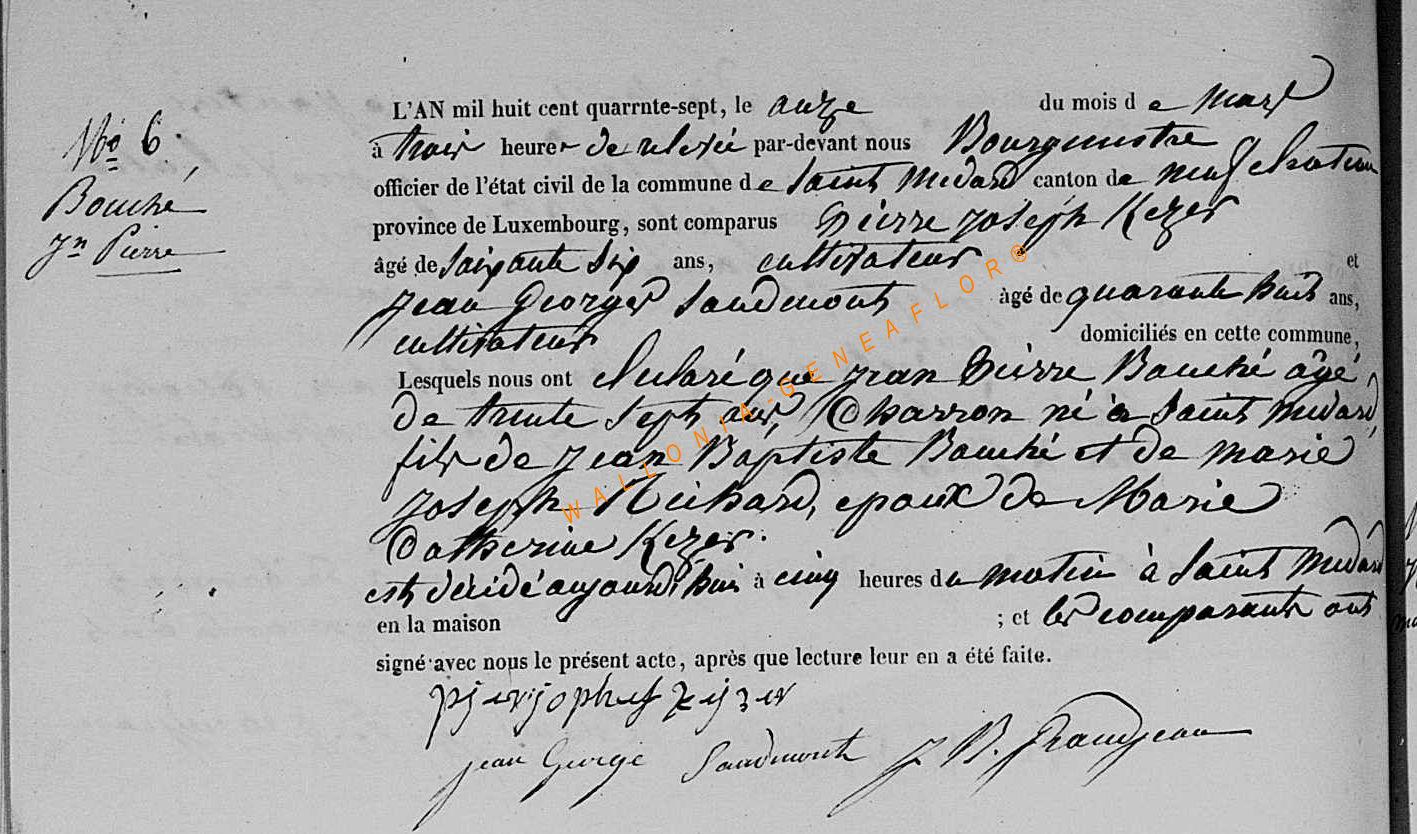 N.º 6
Bouché
Jn Pierre
L'AN mil huit cent quarrnte-sept, le onze du mois de mars
à trois heures de relevée par-devant nous Bourgmestre
officier de l'état civil de la commune de Saint Médard canton de neufchateau
province de Luxembourg, sont comparus Pierre Joseph Kezer
âgé de soixante six ans, cultivateur et
Jean Georges Saudmont âgé de quarante huit ans,
cultivateur domiciliés en cette commune,
Lesquels nous ont déclaré que Jean Pierre Bouché âgé
de trente sept ans, Charron né à Saint Médard,
fils de Jean Baptiste Bouché et de marie
Joseph Richard, epoux de Marie
Catherine Kezer.
est décédé aujourd'hui à cinq heures du matin à Saint Médard
en la maison ; et les comparants ont
signé avec nous le présent acte, après que lecture leur en a été faite.
jean George Saudmont J B. Grandjean
WALLONIA-GENEAFLOR®